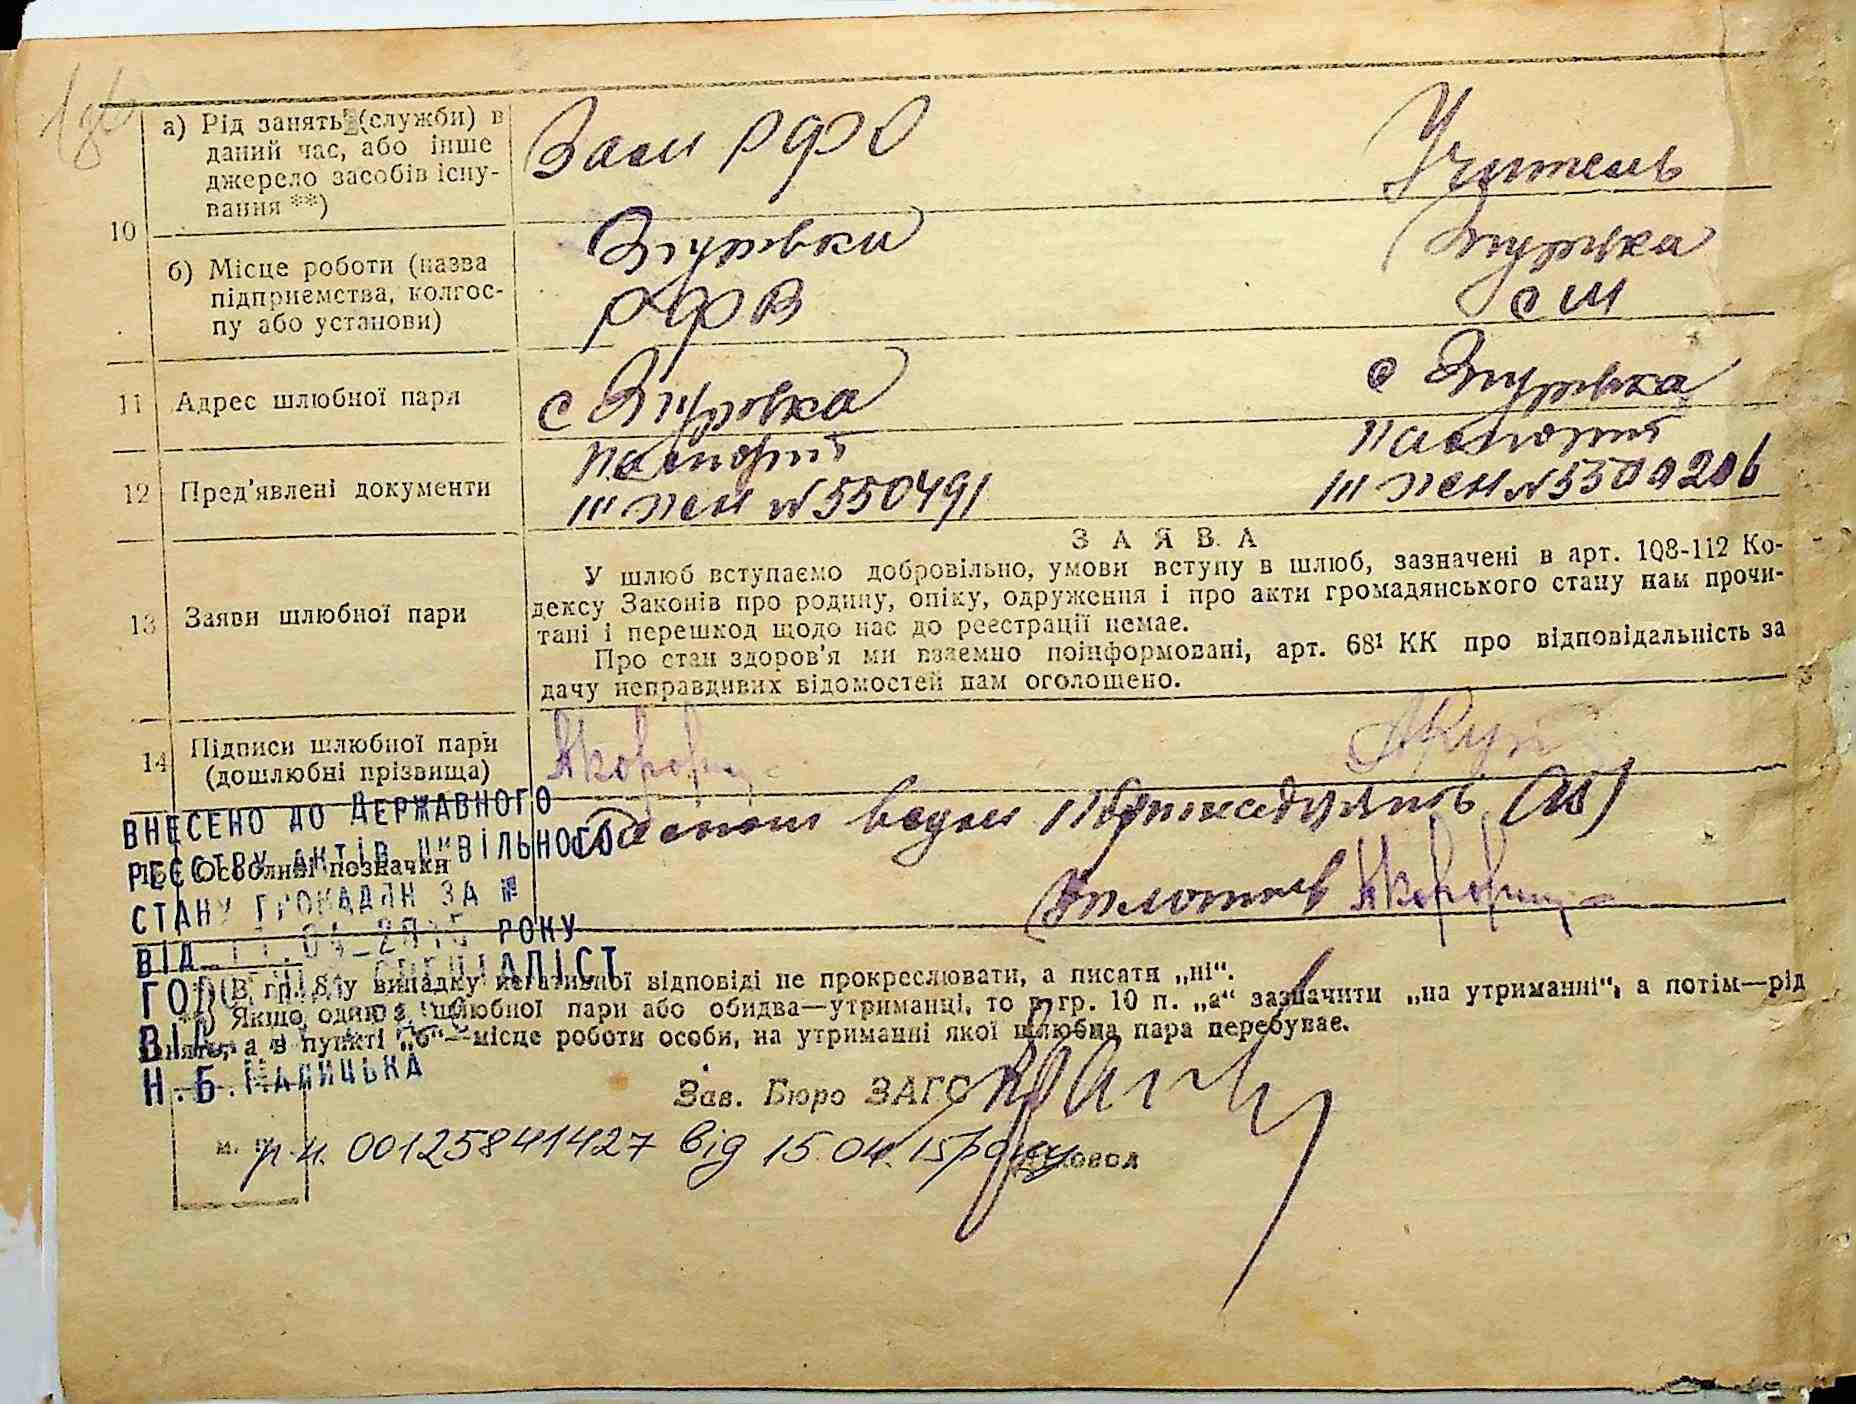 а) Рід занять (служби) в
даний час, або інше
джерело засобів існу-
вання **)
Зам РФО
Учитель
10
б) Місце роботи (назва
підприємства, колгос-
пу або установи)
Згуровки
РФВ
Згурівка
СШ
11 Адрес шлюбної пари
с Згуровка
с Згуровка
12 Пред'явлені документи
паспорт
III ПЕН № 550491
паспорт
III ПЕН №
13 Заяви шлюбної пари
ЗАЯВА
У шлюб вступаємо добровільно, умови вступу в шлюб, зазначені в арт. 108-112 Ко-
дексу Законів про родину, опіку, одруження і про акти громадянського стану нам прочи-
тані і перешкод щодо нас до реєстрації немає.
Про стан здоров'я ми взаємно поінформовані, арт. 68¹ КК про відповідальність за
дачу неправдивих відомостей нам оголошено.
14 Підписи шлюбної пари
(дошлюбні прізвища)
15 Особливі позначки
ВНЕСЕНО ДО ДЕРЖАВНОГО
РЕЄСТРУ АКТІВ ЦИВІЛЬНОГО
СТАНУ ГРОМАДЯН ЗА №
ВІД РОКУ
СПЕЦІАЛІСТ
Н.Б.
В гр. 8 у випадку негативної відповіді не прокреслювати, а писати „ні“.
Якщо один з шлюбної пари або обидва—утриманці, то в гр. 10 п. „а“ зазначити „на утриманні“, а потім—рід
занять, а в пункті „б“—місце роботи особи, на утриманні якої шлюбна пара перебуває.
Зав. Бюро ЗАГС
м. п.
р.н. 00125841427 від 15.04.15 року
Діловод